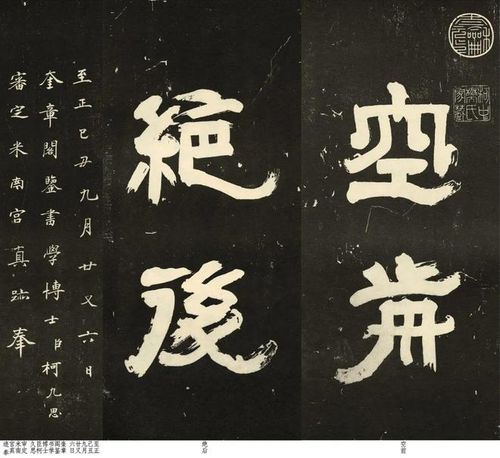 空歬
絕後
至正己丑九月廿又六日
奎章閣鑒書學博士臣柯九思
審定米南宮真跡奉
空前
绝后
至正己丑九月廿又六日 奎章阁鉴书学博士臣柯久思 审定米南宫真迹奉